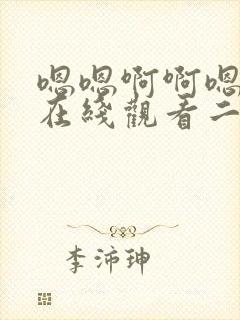 嗯嗯啊啊嗯
在綫觀看二
李沛珅